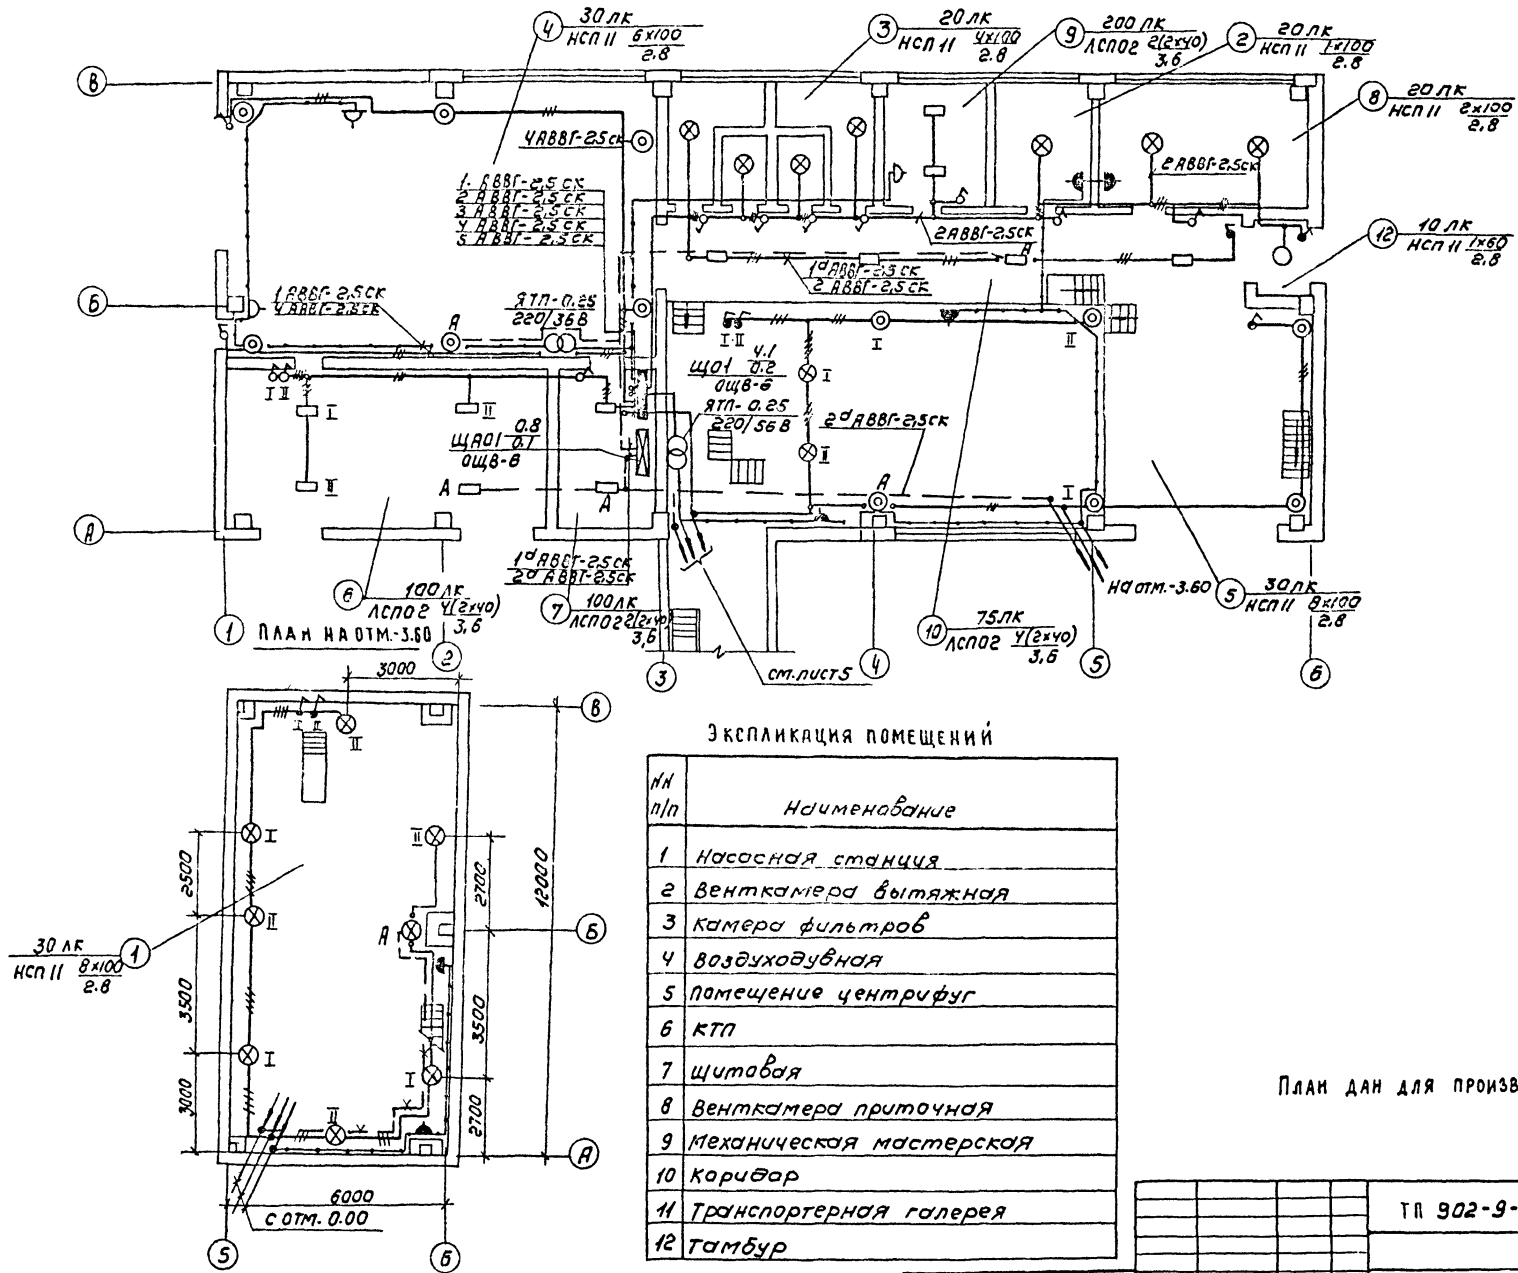 4 30 лк
НСП 11 6х100
2.8
3 20 лк
НСП 11 4х100
2.8
9 200 лк
ЛСП02 2(2х40)
3.6
2 20 лк
НСП 11 1х100
2.8
8 20 лк
НСП 11 2х100
2.8
12 10 лк
НСП 11 1х60
2.8
В
Б
А
4 АВВГ-2.5 ск
1. АВВГ-2.5 ск
2 АВВГ-2.5 ск
3 АВВГ-2.5 ск
4 АВВГ-2.5 ск
5 АВВГ-2.5 ск
2 АВВГ-2.5 ск
2 АВВГ-2.5 ск
1ᵈ АВВГ-2.5 ск
2 АВВГ-2.5 ск
1 АВВГ-2.5 ск
4 АВВГ-2.5 ск
А
ЯТП-0.25
220/36 В
А
I II
I
II
I II
I
II
II
А
А
ЩАО1 0.8
0.1
ОЩВ-6
ЩО1 4.1
0.2
ОЩВ-6
ЯТП-0.25
I
II
2ᵈ АВВГ-2.5 ск
А
I
1ᵈ АВВГ-2.5 ск
2ᵈ АВВГ-2.5 ск
6 100 лк
ЛСП02 4(2х40)
3.6
7 100 лк
ЛСП02 2(2х40)
3.6
10 75 лк
ЛСП02 4(2х40)
3.6
На отм.-3.60
5 30 лк
НСП 11 8х100
2.8
см. лист 5
1
2
3
4
5
6
План на отм.-3.60
3000
В
Б
А
I II
II
I
II
I
II
А
I
II
2500
3500
3000
2700
3500
2700
12000
1 30 лк
НСП 11 8х100
2.8
6000
с отм. 0.00
5
6
Экспликация помещений
NN
п/п
Наименование
1 Насосная станция
2 Венткамера вытяжная
3 Камера фильтров
4 Воздуходувная
5 Помещение центрифуг
6 КТП
7 Щитовая
8 Венткамера приточная
9 Механическая мастерская
10 Коридор
11 Транспортерная галерея
12 Тамбур
План дан для произв
ТП 902-9-